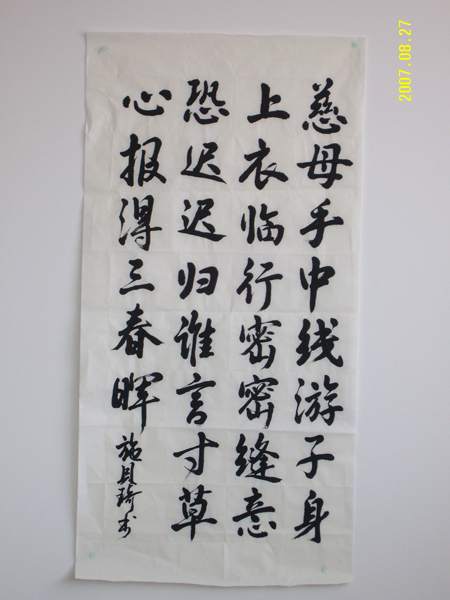 慈母手中线游子身
上衣临行密密缝意
恐迟迟归谁言寸草
心报得三春晖
施贝琦书
2007.08.27